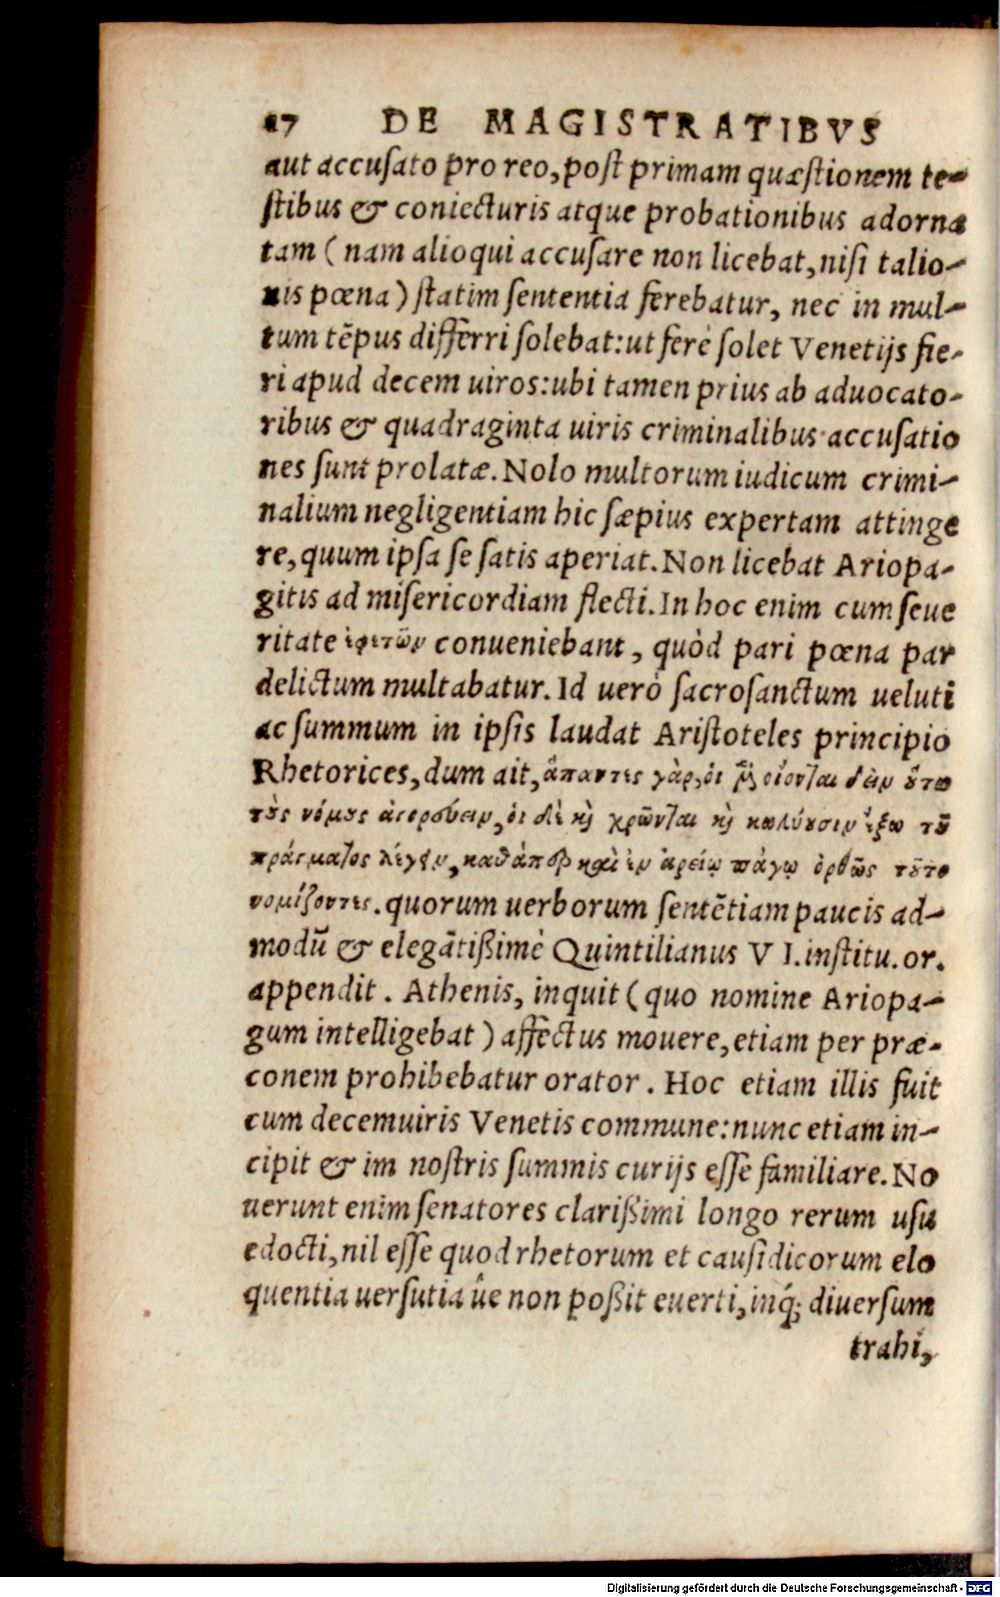 17 DE MAGISTRATIBVS
aut accusato pro reo, post primam quæstionem te-
stibus & coniecturis atque probationibus adorna
tam ( nam alioqui accusare non licebat, nisi talio-
nis pœna ) statim sententia ferebatur, nec in mul-
tum tẽpus differri solebat: ut ferè solet Venetijs fie-
ri apud decem uiros: ubi tamen prius ab aduocato-
ribus & quadraginta uiris criminalibus accusatio
nes sunt prolatæ. Nolo multorum iudicum crimi-
nalium negligentiam hic sæpius expertam attinge
re, quum ipsa se satis aperiat. Non licebat Ariopa-
gitis ad misericordiam flecti. In hoc enim cum seue
ritate ἐφετῶν conueniebant, quòd pari pœna par
delictum multabatur. Id uerò sacrosanctum ueluti
ac summum in ipsis laudat Aristoteles principio
Rhetorices, dum ait, ἅπαντες γὰρ, οἱ μὲν οἴονται δεῖν οὕτω
τοὺς νόμους ἀγορεύειν, οἱ δὲ καὶ χρῶνται καὶ κωλύουσιν ἔξω τοῦ
πράγματος λέγειν, καθάπερ καὶ ἐν ἀρείῳ πάγῳ ὀρθῶς τοῦτο
νομίζοντες. quorum uerborum sentẽtiam paucis ad-
modũ & elegãtißimè Quintilianus V I. institu. or.
appendit. Athenis, inquit ( quo nomine Ariopa-
gum intelligebat ) affectus mouere, etiam per præ-
conem prohibebatur orator. Hoc etiam illis fuit
cum decemuiris Venetis commune: nunc etiam in-
cipit & im nostris summis curijs esse familiare. No
uerunt enim senatores clarißimi longo rerum usu
edocti, nil esse quod rhetorum et causidicorum elo
quentia uersutia ûe non poßit euerti, inq́; diuersum
trahi,
Digitalisierung gefördert durch die Deutsche Forschungsgemeinschaft - DFG